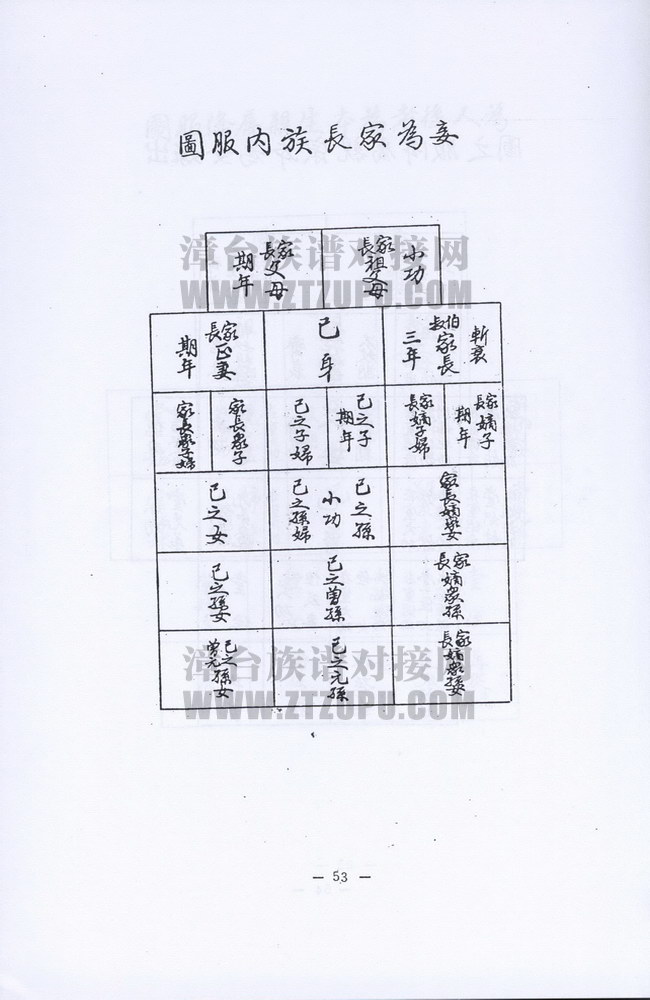 妾為家長族內服圖
小功
家長祖父母
家長父母
期年
斬衰
家長
三年
己身
家長正妻
期年
家長嫡子
期年
家長嫡子婦
己之子
期年
己之子婦
家長眾子
家長眾子婦
己之孫
小功
己之孫婦
己之女
家長嫡眾孫
己之曾孫
己之孫女
己之元孫
己之曾元孫女
漳台族谱对接网
WWW.ZTZUPU.COM
漳台族谱对接网
WWW.ZTZUPU.COM
— 53 —